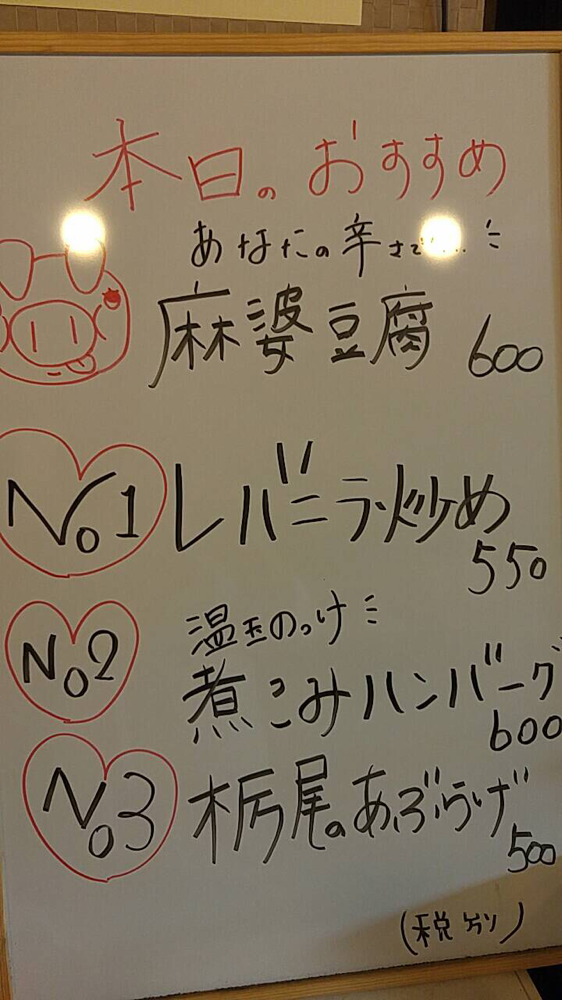 本日のおすすめ
あなたの辛さで...
麻婆豆腐 600
No1 レバニラ炒め
550
温玉のっけ
No2 煮こみハンバーグ
600
No3 栃尾のあぶらげ
500
(税別)